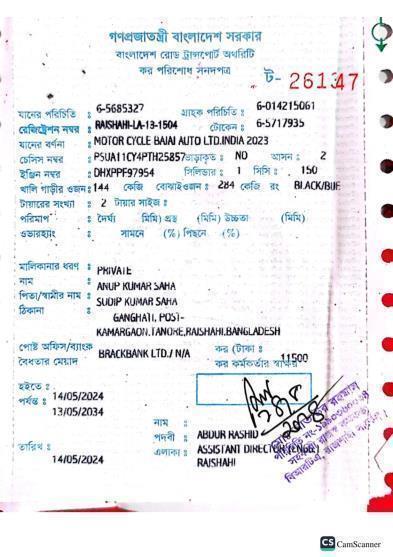 গণপ্রজাতন্ত্রী বাংলাদেশ সরকার
বাংলাদেশ রোড ট্রান্সপোর্ট অথরিটি
কর পরিশোধ সনদপত্র
ট- 261347
যানের পরিচিতি : 6-5685327 গ্রাহক পরিচিতি : 6-014215061
রেজিস্ট্রেশন নম্বর : RAJSHAHI-LA-13-1504 টোকেন : 6-5717935
যানের বর্ণনা : MOTOR CYCLE BAJAJ AUTO LTD.INDIA 2023
চেসিস নম্বর : PSUA11CY4PTH25857 ভাড়াকৃত : NO আসন : 2
ইঞ্জিন নম্বর : DHXPPF97954 সিলিন্ডার : 1 সিসি : 150
খালি গাড়ীর ওজন : 144 কেজি বোঝাইওজন : 284 কেজি রং BLACK/BUE
টায়ারের সংখ্যা : 2 টায়ার সাইজ :
পরিমাপ : দৈর্ঘ্য (মিমি) প্রস্থ (মিমি) উচ্চতা (মিমি)
ওভারহ্যাং : সামনে (%) পিছনে (%)
মালিকানার ধরণ : PRIVATE
নাম : ANUP KUMAR SAHA
পিতা/স্বামীর নাম : SUDIP KUMAR SAHA
ঠিকানা : GANGHATI, POST-
KAMARGAON,TANORE,RAJSHAHI,BANGLADESH
পোষ্ট অফিস/ব্যাংক : BRACKBANK LTD./ N/A কর (টাকা : 11500
বৈধতার মেয়াদ কর কর্মকর্তার স্বাক্ষর
হইতে : 14/05/2024
পর্যন্ত : 13/05/2034
নাম :
পদবী : ABDUR RASHID
এলাকা : ASSISTANT DIRECTOR (ENGG.)
তারিখ : 14/05/2024 RAJSHAHI
CS CamScanner